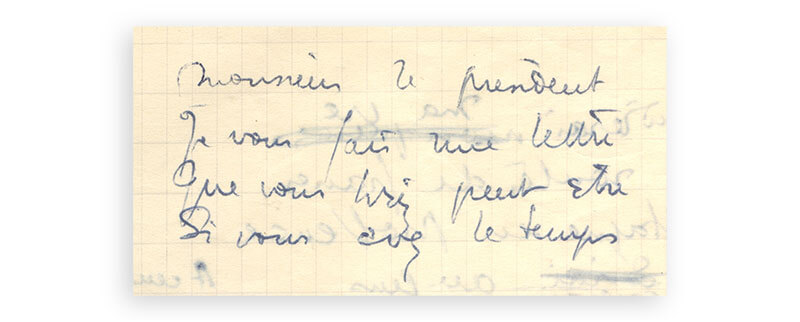 Monsieur le président
Je vous fais une lettre
Que vous lirez peut etre
Si vous avez le temps